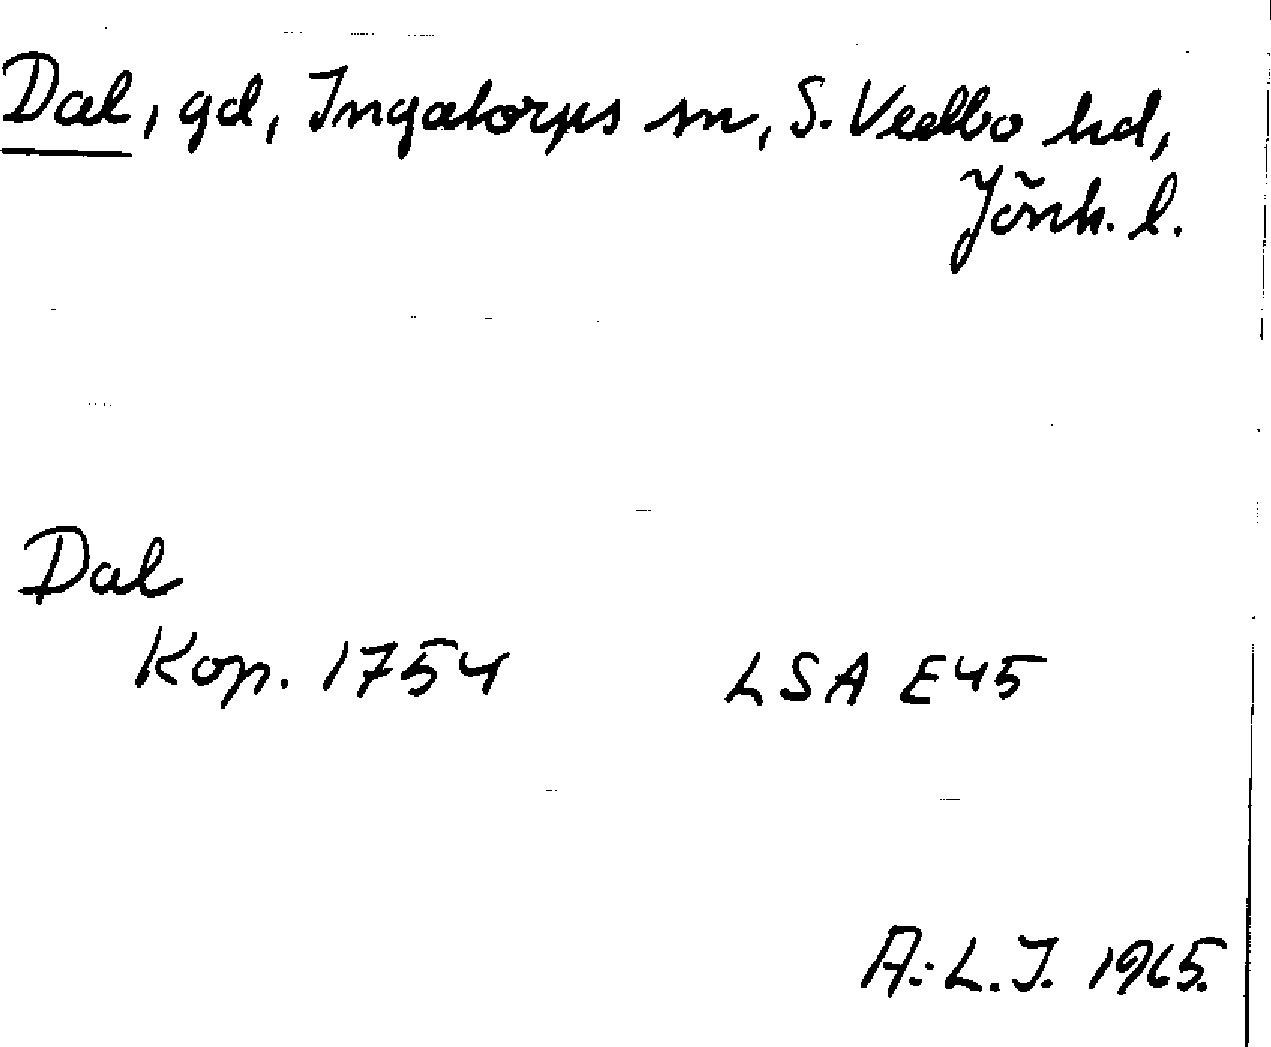 Dal, gd, Ingatorps sn, S. Vedbo hd,
Jönk. l.
Dal
Kop. 1754 LSA E45
A:L.J. 1965.